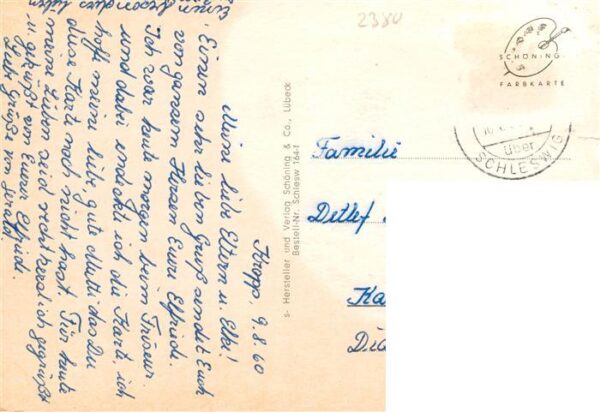 2380
SCHÖNING
FARBKARTE
über
SCHLESWIG
Familie
Detlef
Ka
Dia
s- Hersteller und Verlag Schöning & Co., Lübeck
Bestell-Nr. Schlesw 164-f
Kropp, 9.8.60
Meine liebe Eltern u. Elki!
Einen sehr lieben Gruß sendet Euch
von ganzem Herzen Eure Elfriede.
Ich war heute morgen beim Friseur
und dabei entdeckte ich die Karte, ich
hoffe meine liebe gute Mutti das Du
diese Karte noch nicht hast. Für heute
meine Lieben seid recht herzlich gegrüßt
u. geküßt von Eurer Elfriede.
Liebe Grüße von Gerald.
Einen